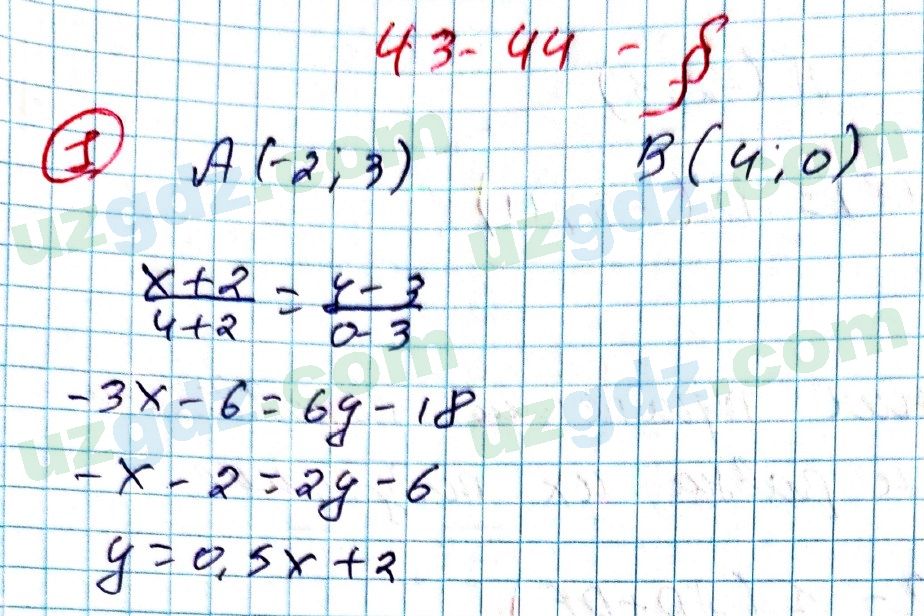 43-44-§
1 A(-2; 3) B(4; 0)
x+2/4+2 = y-3/0-3
-3x-6=6y-18
-x-2=2y-6
y=0,5x+2
uzgdz.com
uzgdz.com
uzgdz.com
uzgdz.com